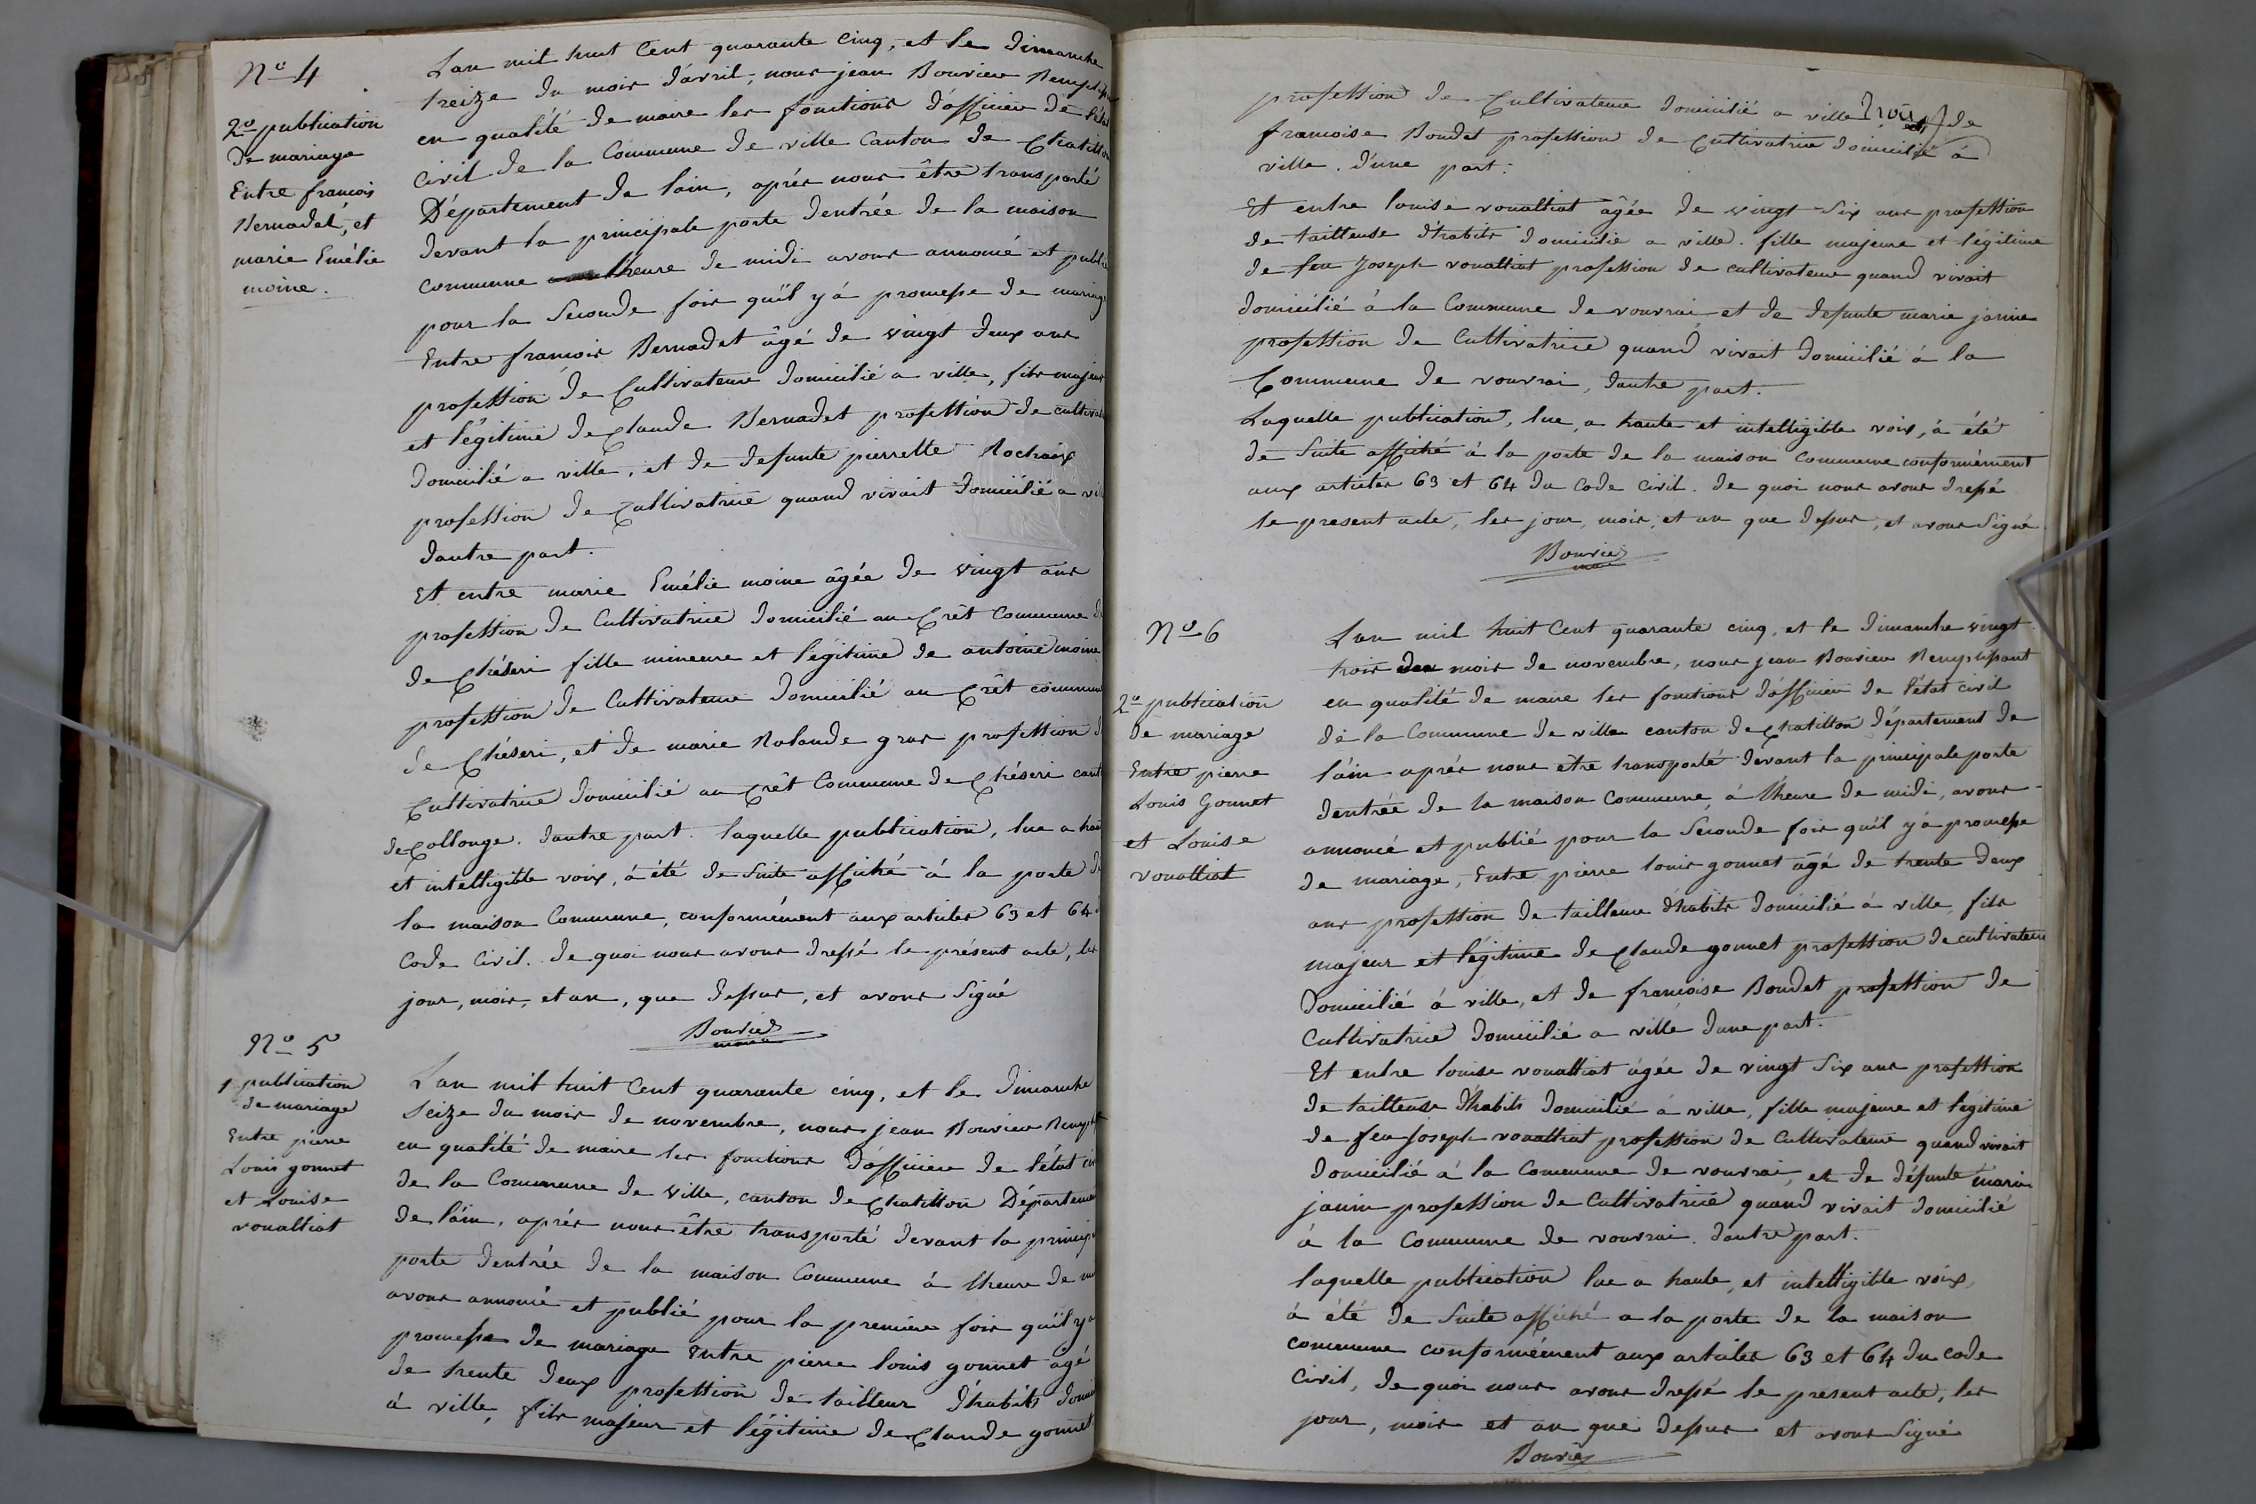 N° 4
2e publication
de mariage
Entre francois
Bernadet, et
marie Emélie
moine.
Lan mil huit Cent quarante cinq, et le dimanche
treize du mois d'avril, nous jean Bouvier
en qualité de maire les fonctions d'officier de l'état
civil de la Commune de ville Canton de Chatillon
Département de lain, aprés nous être transporté
devant la principale porte dentrée de la maison
commune lheure de midi avons annoncé et publié
pour la Seconde fois qu'il y á promesse de mariage
Entre francois Bernadet âgé de vingt deux ans
profession de Cultivateur domicilié a ville, fils majeur
et légitime de Claude Bernadet profession de cultivat
domicilié a ville, et de defunte pierrette Rochaix
profession de Cultivatrice quand vivait domicilié a vil
dautre part.
Et entre marie Emélie moine âgée de vingt ans
profession de Cultivatrice domicilié au Crêt Commune d
de Chéseri fille mineure et légitime de antoine moine
profession de Cultivateur domicilié au Crêt commune
de Chéseri, et de marie Rolande gros profession d
Cultivatrice domicilié au Crêt Commune de Chéseri cant
de Collonge. dautre part. laquelle publication, lue a haut
et intelligible voix, á été de Suite affiché á la porte d
la maison Commune, conformément aux articles 63 et 64
Code Civil. de quoi nous avons dressé le présent acte, les
jour, mois, et an, que dessus, et avons Signé
Bouvier
maire
N° 5
1 publication
de mariage
Entre pierre
Louis gonnet
et Louise
vouattiat
Lan mil huit Cent quarante cinq, et le dimanche
Seize du mois de novembre, nous jean Bouvier
en qualité de maire les fonctions d'officier de l'état ci
de la Commune de Ville, canton de Chatillon Département
de láin, aprés nous être transporté devant la princip
porte dentrée de la maison Commune á lheure de mi
avons annoncé et publié pour la premiere fois qu'il y a
promesse de mariage Entre pierre louis gonnet âgé
de trente deux profession de tailleur d'habits domici
á ville, fils majeur et légitime de Claude gonnet
profession de Cultivateur domicilié a ville et de
francoise Boudet profession de Cultivatrice domicilié á
ville. d'une part.
Et entre louise vouattiat âgée de vingt Six ans profession
de tailleuse d'habits domicilié a ville. fille majeure et légitime
de feu Joseph vouattiat profession de cultivateur quand vivait
domicilié á la Commune de vouvrai et de defunte marie janin
profession de Cultivatrice quand vivait domicilié á la
Commune de vouvrai, dautre part.
Laquelle publication, lue, a haute et intelligible voix, á été
de Suite affiché á la porte de la maison Commune conformément
aux articles 63 et 64 du Code Civil. de quoi nous avons dressé
le present acte, les jour, mois, et an que dessus, et avons Signé
Bouvier
maire
N° 6
2e publication
de mariage
Entre pierre
Louis Gonnet
et Louise
vouattiat
Lan mil huit Cent quarante cinq, et le dimanche vingt
trois du mois de novembre, nous jean Bouvier Remplissant
en qualité de maire les fonctions d'officier de l'état civil
de la Commune de ville canton de Chatillon département de
láin aprés nous être transporté devant la principale porte
dentrée de la maison Commune, á lheure de midi, avons
annoncé et publié pour la Seconde fois qu'il y á promesse
de mariage, Entre pierre louis gonnet âgé de trente deux
ans profession de tailleur d'habits domicilié á ville, fils
majeur et légitime de Claude gonnet profession de cultivateur
Domicilié á ville, et de francoise Boudet profession de
Cultivatrice domicilié a ville dune part.
Et entre louise vouattiat âgée de vingt Six ans profession
de tailleuse d'habits domicilié á ville, fille majeure et légitime
de feu Joseph vouattiat profession de Cultivateur quand vivait
domicilié á la Commune de vouvrai, et de défunte marie
janin profession de Cultivatrice quand vivait domicilié
á la Commune de vouvrai. dautre part.
laquelle publication lue a haute, et intelligible voix,
á été de Suite affiché a la porte de la maison
commune conformément aux articles 63 et 64 du code
Civil, de quoi nous avons dressé le present acte, les
jour, mois et an que dessus et avons Signé
Bouvier